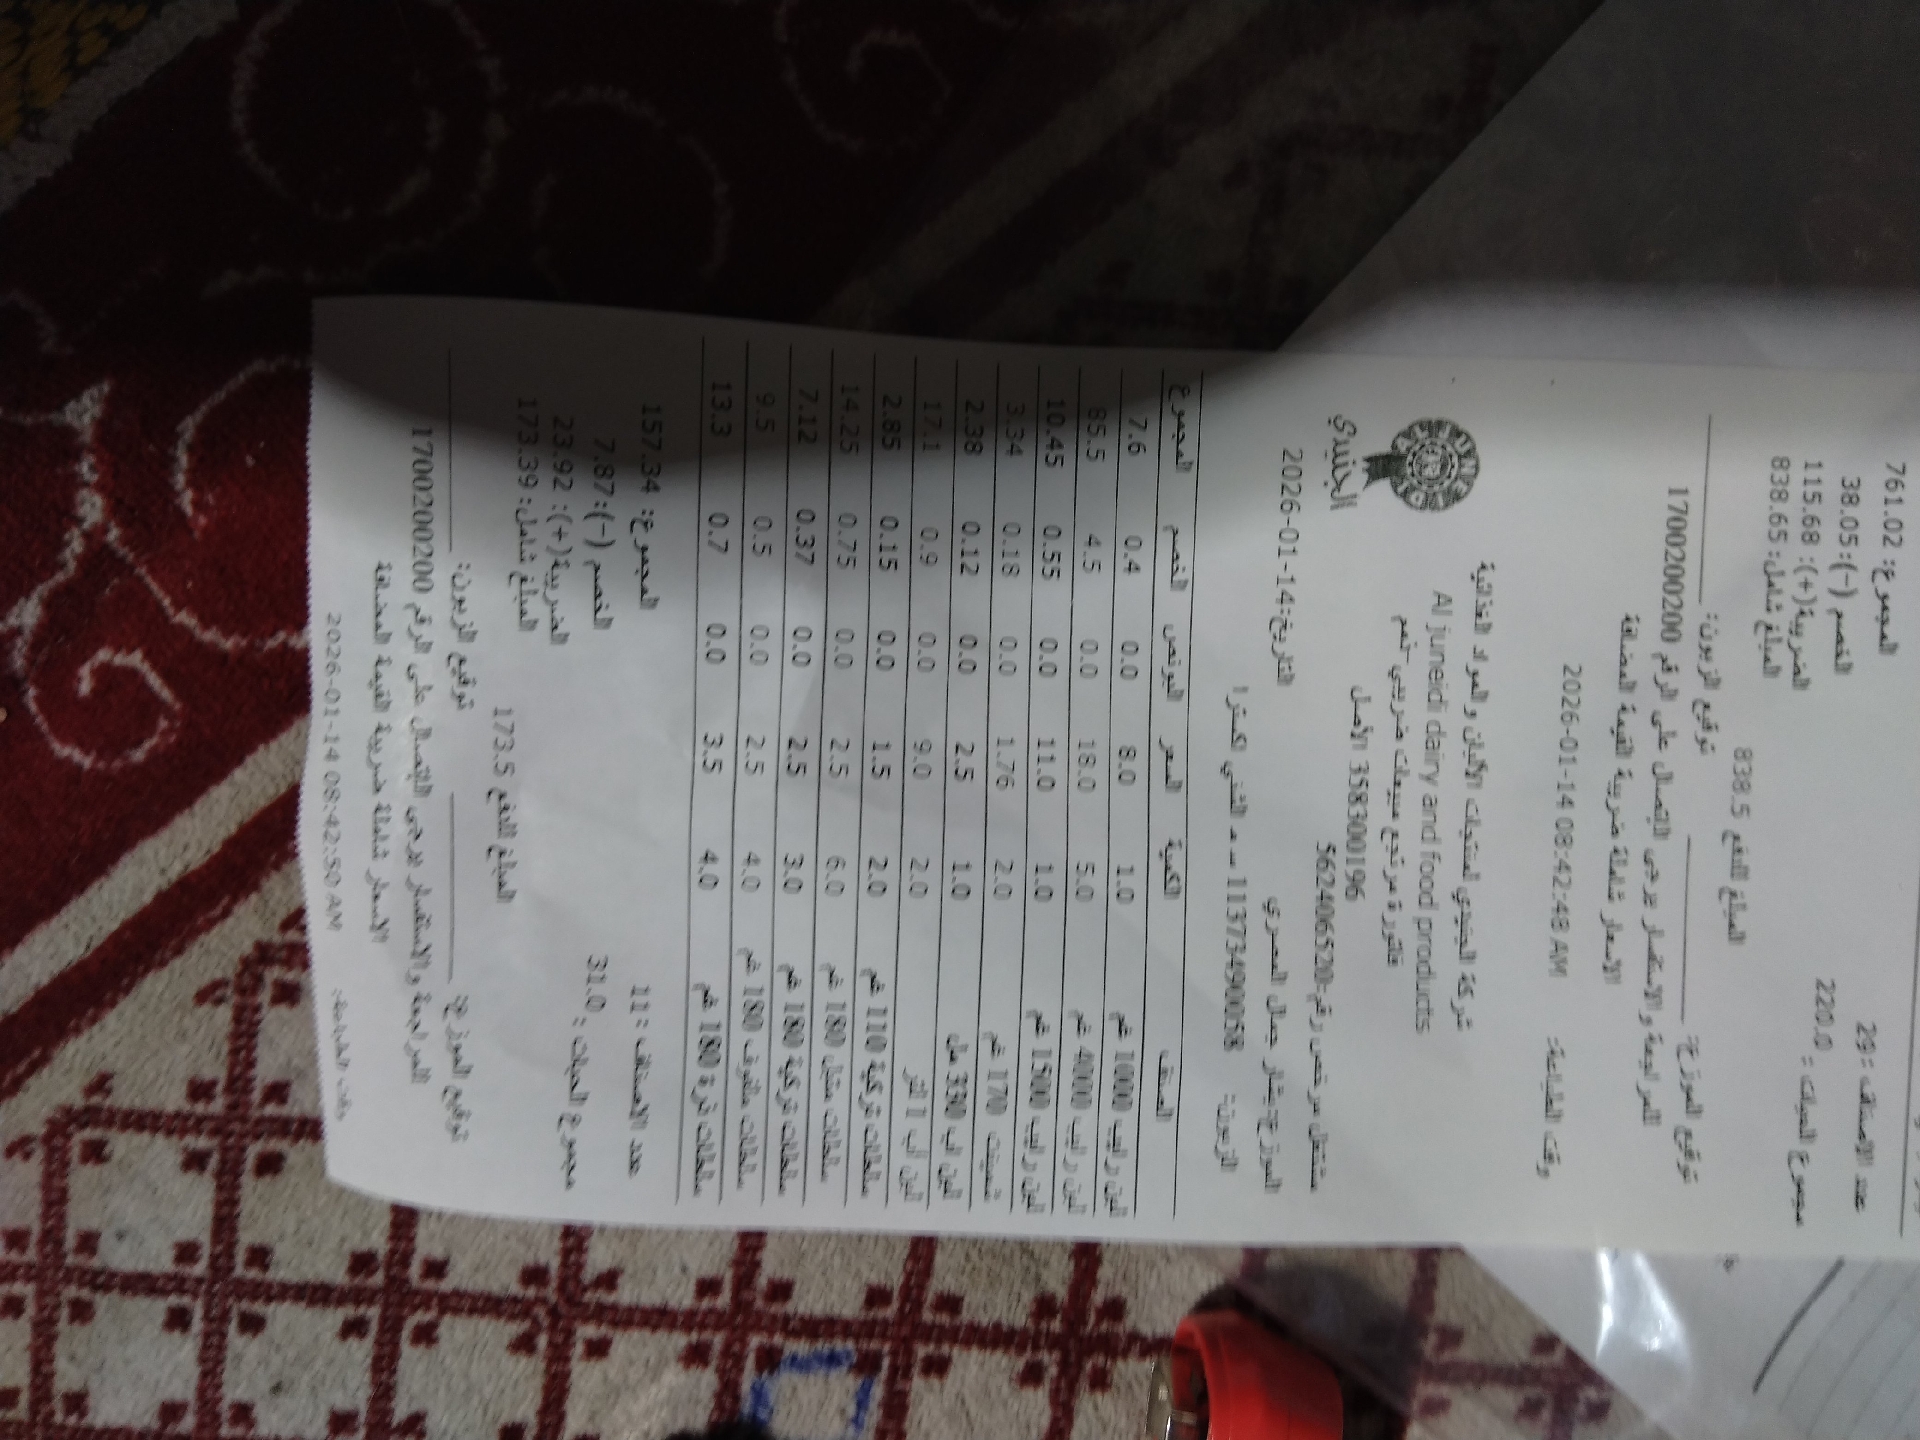 عدد الاصناف : 29
المجموع: 761.02
مجموع الحبات : 220.0
الخصم (-):38.05
الضريبة(+): 115.68
المبلغ شامل: 838.65
المبلغ للدفع 838.5
توقيع الموزع: توقيع الزبون:
للمراجعة و الاستفسار يرجى الاتصال على الرقم 1700200200
الاسعار شاملة ضريبة القيمة المضافة
وقت الطباعة: 2026-01-14 08:42:48 AM
شركة الجنيدي لمنتجات الألبان و المواد الغذائية
Al juneidi dairy and food products
فاتورة مرتجع مبيعات ضريبي
الجنيدي
358300196 الأصل
مشتغل مرخص رقم:562406520
الموزع:بشار جمال المصري
التاريخ:2026-01-14
الزبون: 113734900058
الصنف الكمية السعر البونص الخصم المجموع
لبن رايب 1000 غم 1.0 8.0 0.0 0.4 7.6
لبن رايب 4000 غم 5.0 18.0 0.0 4.5 85.5
لبن رايب 1500 غم 1.0 11.0 0.0 0.55 10.45
170 غم 2.0 1.76 0.0 0.18 3.34
لبن اب 330 مل 1.0 2.5 0.0 0.12 2.38
لبن اب 1 لتر 2.0 9.0 0.0 0.9 17.1
سلطات تركية 110 غم 2.0 1.5 0.0 0.15 2.85
سلطات متبل 180 غم 6.0 2.5 0.0 0.75 14.25
سلطات تركية 180 غم 3.0 2.5 0.0 0.37 7.12
سلطات ملفوف 180 غم 4.0 2.5 0.0 0.5 9.5
سلطات ذرة 180 غم 4.0 3.5 0.0 0.7 13.3
عدد الاصناف : 11
المجموع: 157.34
مجموع الحبات : 31.0
الخصم (-):7.87
الضريبة(+): 23.92
المبلغ شامل: 173.39
المبلغ للدفع 173.5
توقيع الموزع: توقيع الزبون:
للمراجعة و الاستفسار يرجى الاتصال على الرقم 1700200200
الاسعار شاملة ضريبة القيمة المضافة
وقت الطباعة: 2026-01-14 08:42:50 AM